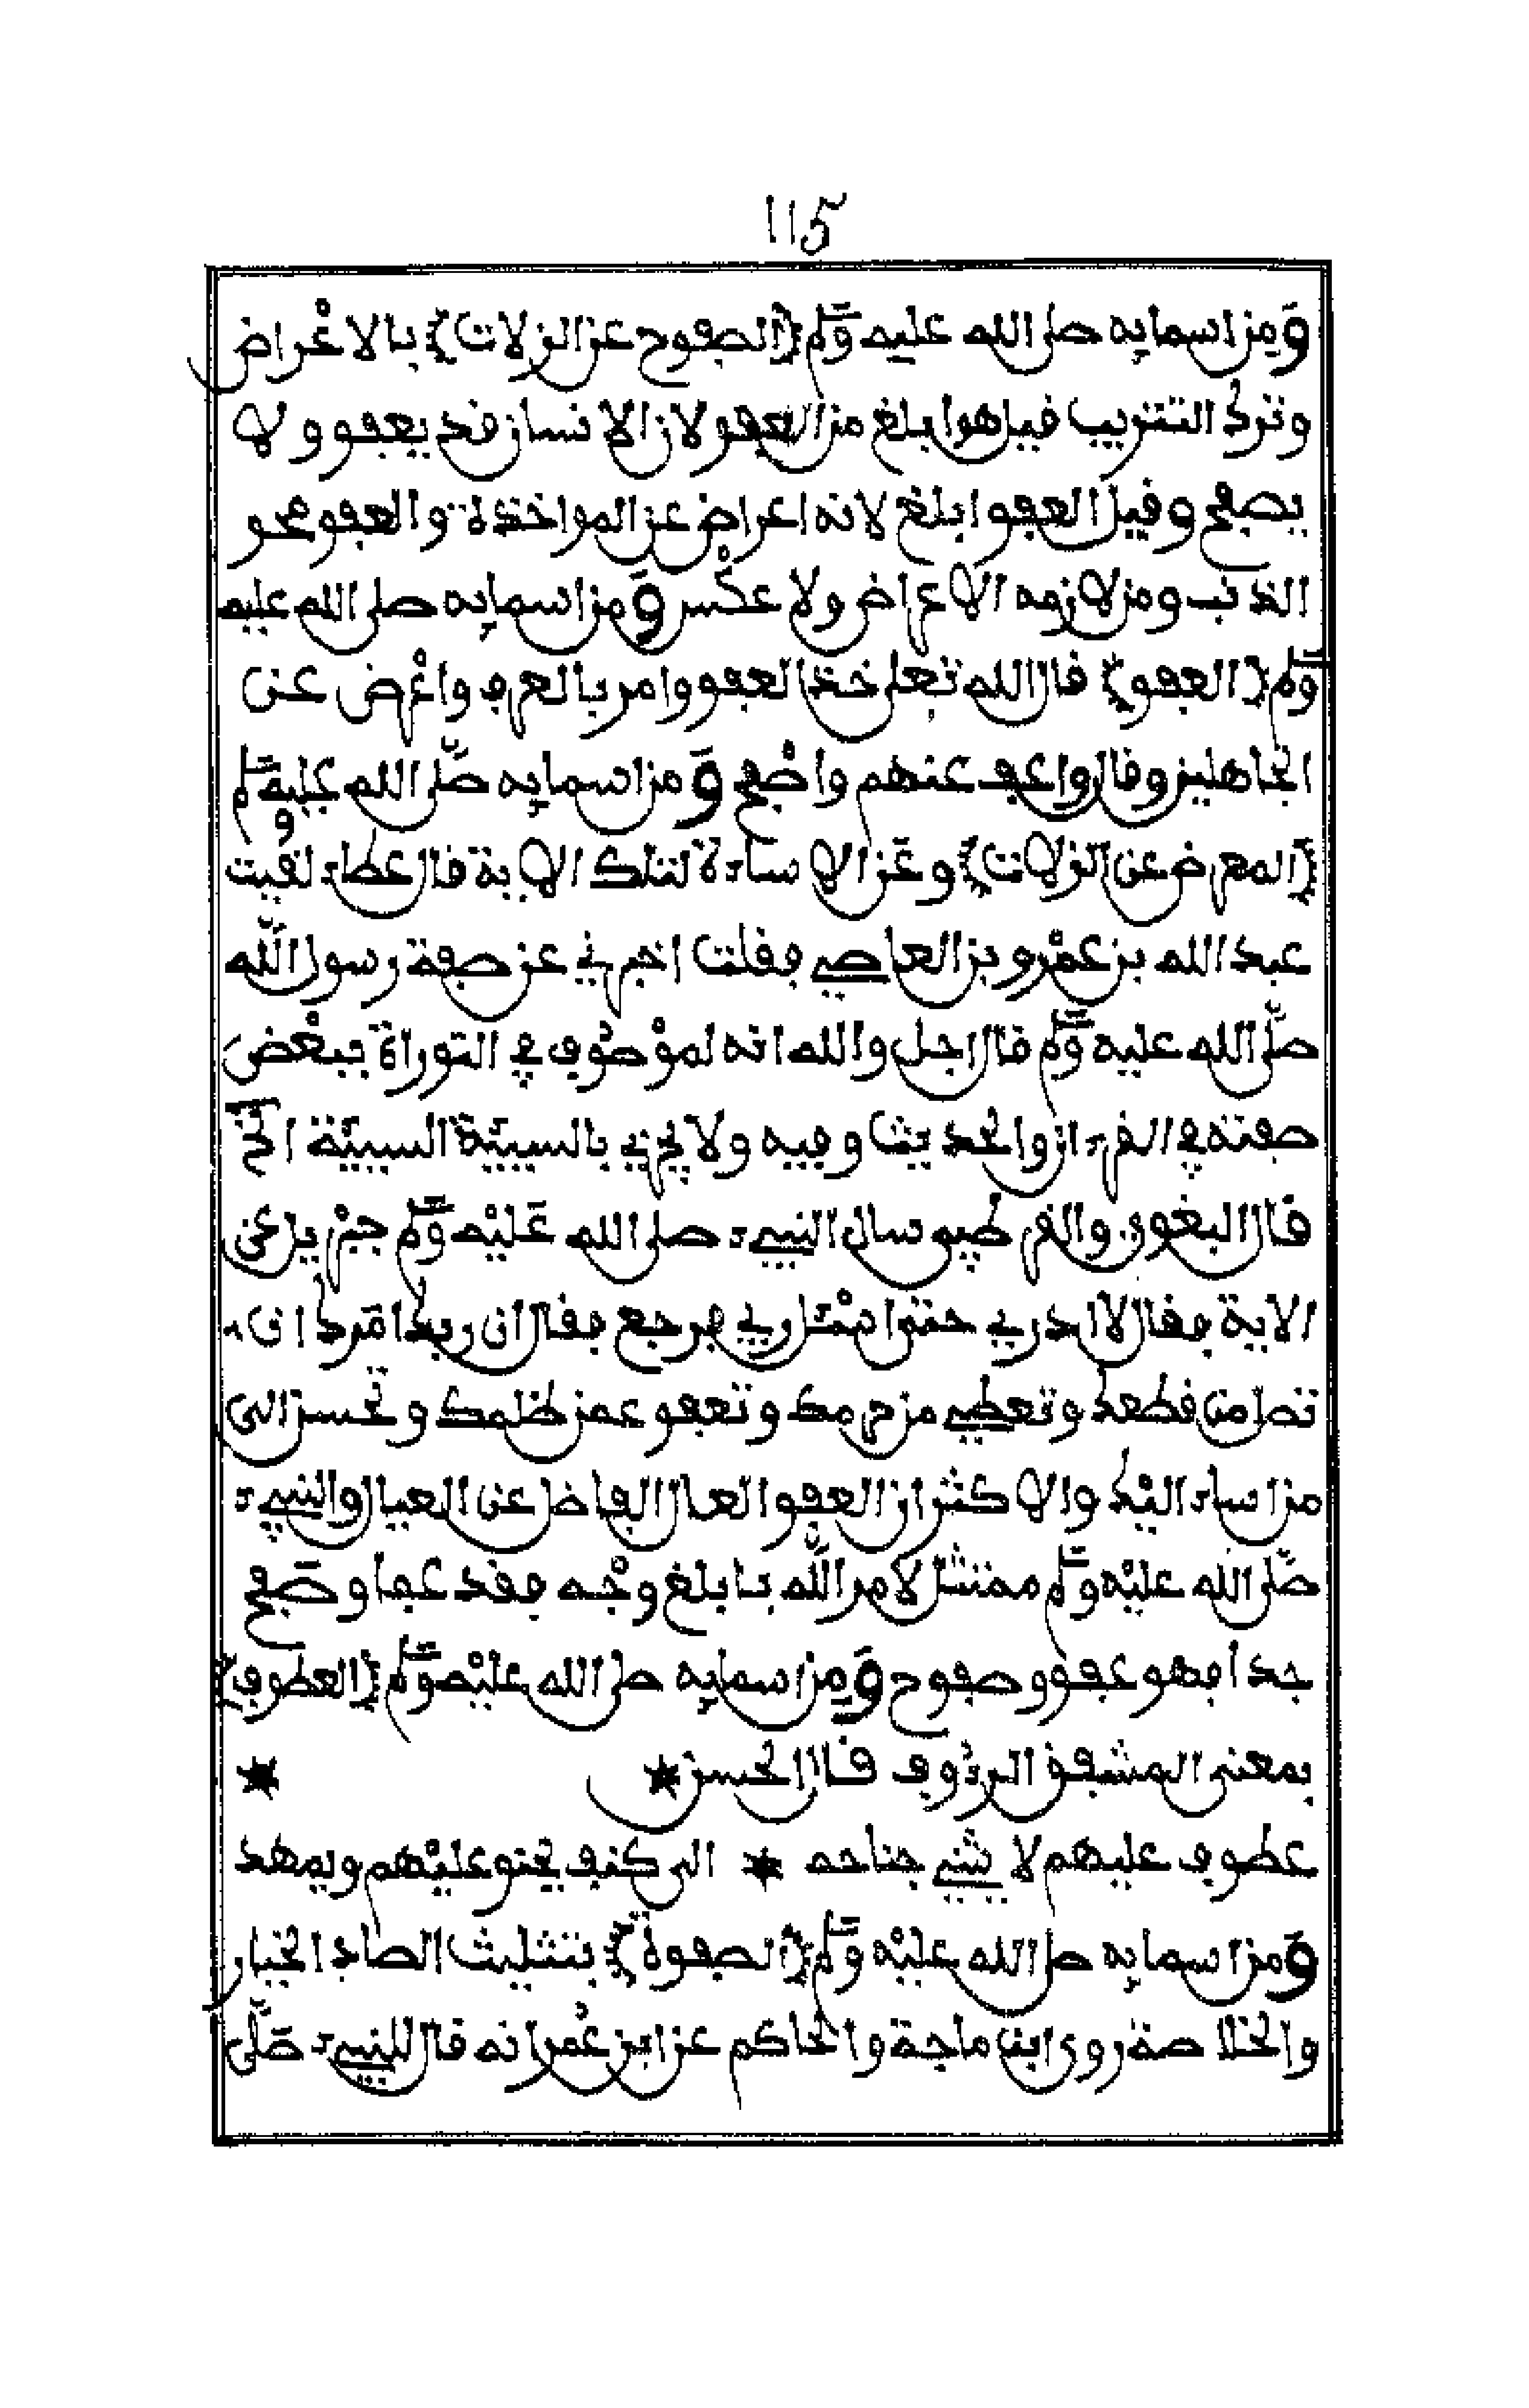 115
ومن اسمايه صلى الله عليه وسلم {الصفوح عن الزلات} بالاعراض
وترك التثريب فيل هو ابلغ من العفو لان الانسان قد يعفو ولا
يصفح وقيل العفو ابلغ لانه اعراض عن المواخذة والعفو محو
الذنب ومن لازمه الاعراض ولا عكس ومن اسمايه صلى الله عليه
وسلم {العفو} قال الله تعلى خذ العفو وامر بالعرف واعرض عن
الجاهلين وقال واعف عنهم واصفح ومن اسمايه صلى الله عليه وسلم
{المعرض عن الزلات} وعن الاساءة لتلك الاية قال عطاء لقيت
عبد الله بن عمرو بن العاصي فقلت اخبرني عن صفة رسول الله
صلى الله عليه وسلم قال اجل والله انه لموصوف في التوراة ببعض
صفته في القرءان والحديث وفيه ولا يجزي بالسيية السيية الخ
قال البغوي والقرطبي سال النبيء صلى الله عليه وسلم جبريل عن
الاية فقال لا ادري حتى اسئل ربي فرجع فقال ان ربك امرك ان
تصل من قطعك وتعطي من حرمك وتعفو عمن ظلمك وتحسن الى
من اساء اليك والاكثر ان العفو العال الفاضل عن العيال والنبيء
صلى الله عليه وسلم ممتثل لامر الله بابلغ وجه فقد عفا وصفح
جدا فهو عفو وصفوح ومن اسمايه صلى الله عليه وسلم {العطوف}
بمعنى المشفق الرءوف قال الحسن * *
عطوف عليهم لا يثني جناحه * الى كنف يحنو عليهم ويمهد
ومن اسمايه صلى الله عليه وسلم {الصفوة} بتثليث الصاد الخيار
والخلاصة روى ابن ماجة والحاكم عن ابن عمر انه قال للنبيء صلى